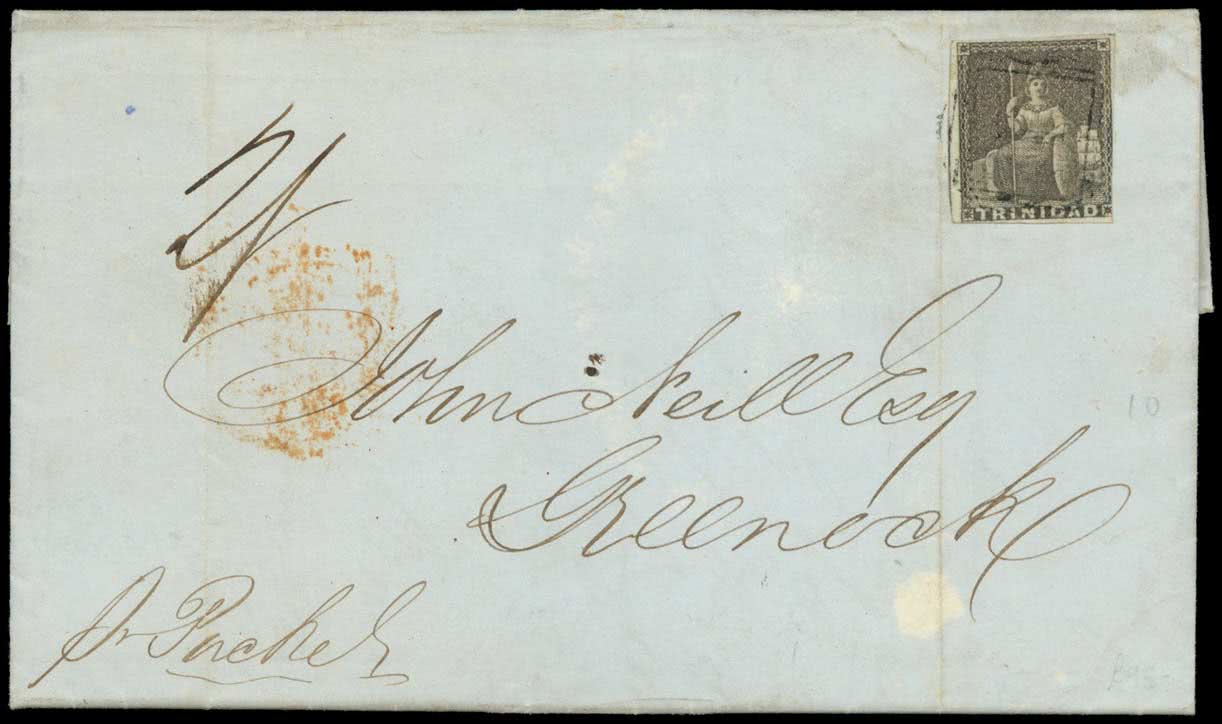 TRINIDAD
John Neill Esq
Greenock
pr Packet
10